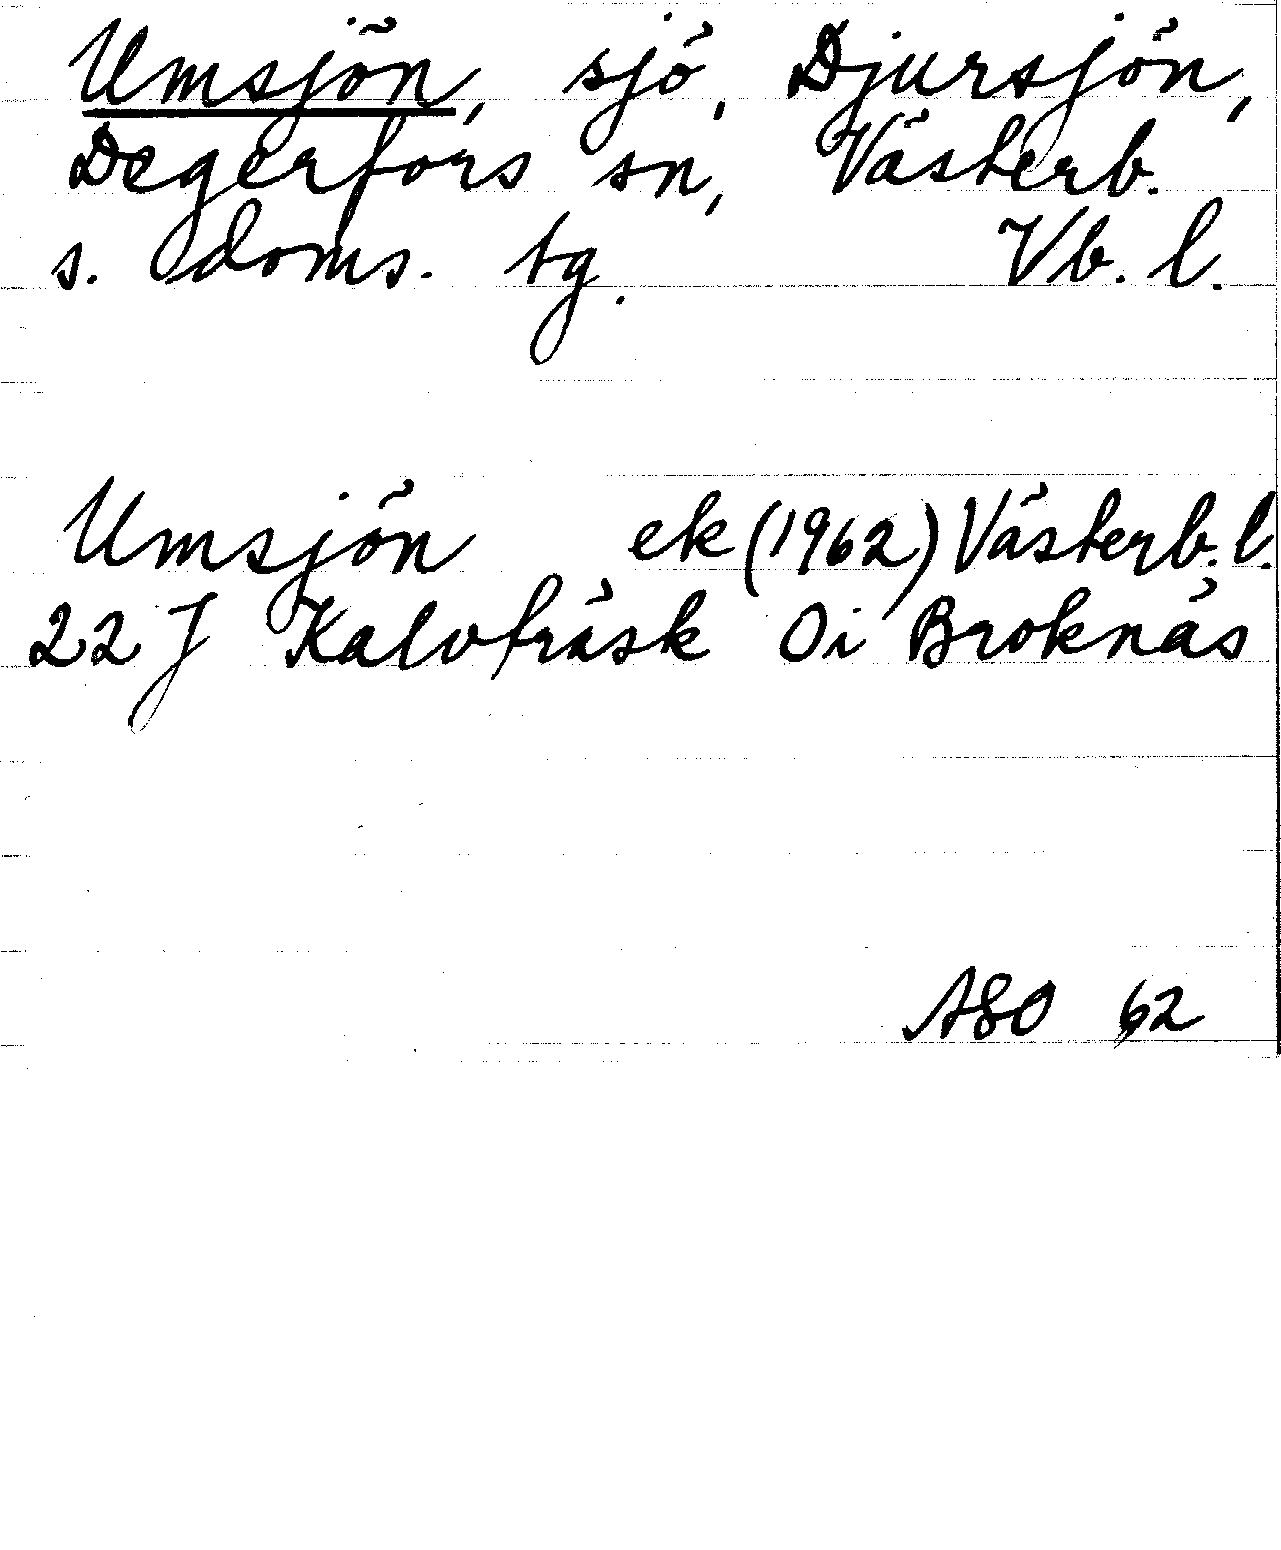 Umsjön, sjö, Djursjön,
Degerfors sn, Västerb.
s. doms. tg. Vb. l.
Umsjön ek (1962) Västerb. l.
22 J Kalvträsk Oi Broknäs
ASO 62